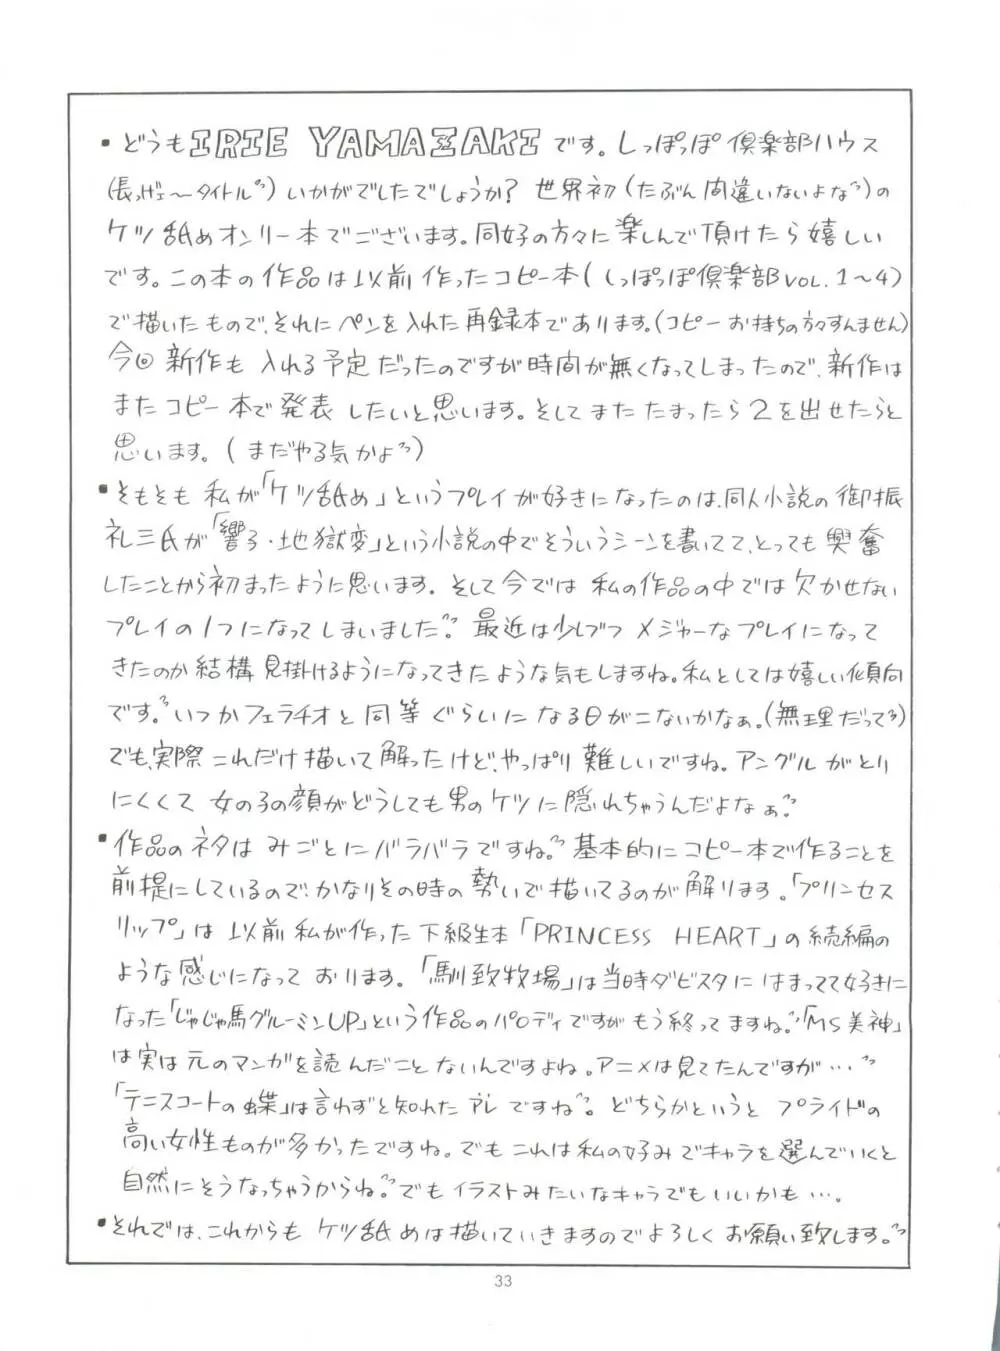 ・どうもIRIE YAMAZAKIです。しっぽっぽ倶楽部ハウス
(長っげェ〜タイトル〃)いかがでしたでしょうか?世界初(たぶん間違いないよな〃)の
ケツ舐めオンリー本でございます。同好の方々に楽しんで頂けたら嬉しい
です。この本の作品は以前作ったコピー本(しっぽっぽ倶楽部VOL.1〜4)
で描いたもので、それにペンを入れた再録本であります。(コピーお持ちの方々すんません)
今回新作も入れる予定だったのですが時間が無くなってしまったので、新作は
またコピー本で発表したいと思います。そしてまたたまったら2を出せたらと
思います。(まだやる気かよ〃)
・そもそも私が「ケツ舐め」というプレイが好きになったのは、同人小説の御振
礼三氏が「響子・地獄変」という小説の中でそういうシーンを書いてて、とっても興奮
したことから初まったように思います。そして今では私の作品の中では欠かせない
プレイの1つになってしまいました〃。最近は少しづつメジャーなプレイになって
きたのか結構見掛けるようになってきたような気もしますね。私としては嬉しい傾向
です。〃いつかフェラチオと同等ぐらいになる日がこないかなぁ。(無理だって〃)
でも、実際これだけ描いて解ったけど、やっぱり難しいですね。アングルがとり
にくくて女の子の顔がどうしても男のケツに隠れちゃうんだよなぁ〃
・作品のネタはみごとにバラバラですね。〃基本的にコピー本で作ることを
前提にしているので、かなりその時の勢いで描いてるのが解ります。「プリンセス
リップ」は以前私が作った下級生本「PRINCESS HEART」の続編の
ような感じになっております。「馴致牧場」は当時ダビスタにはまってて好きに
なった「じゃじゃ馬グルーミンUP」という作品のパロディですがもう終ってますね。〃「MS美神」
は実は元のマンガを読んだことないんですよね。アニメは見てたんですが…〃
「テニスコートの蝶」は言わずと知れたアレですね〃。どちらかというとプライドの
高い女性ものが多かったですね。でもこれは私の好みでキャラを選んでいくと
自然にそうなっちゃうからね。〃でもイラストみたいなキャラでもいいかも…。
・それでは、これからもケツ舐めは描いていきますのでよろしくお願い致します。〃
33